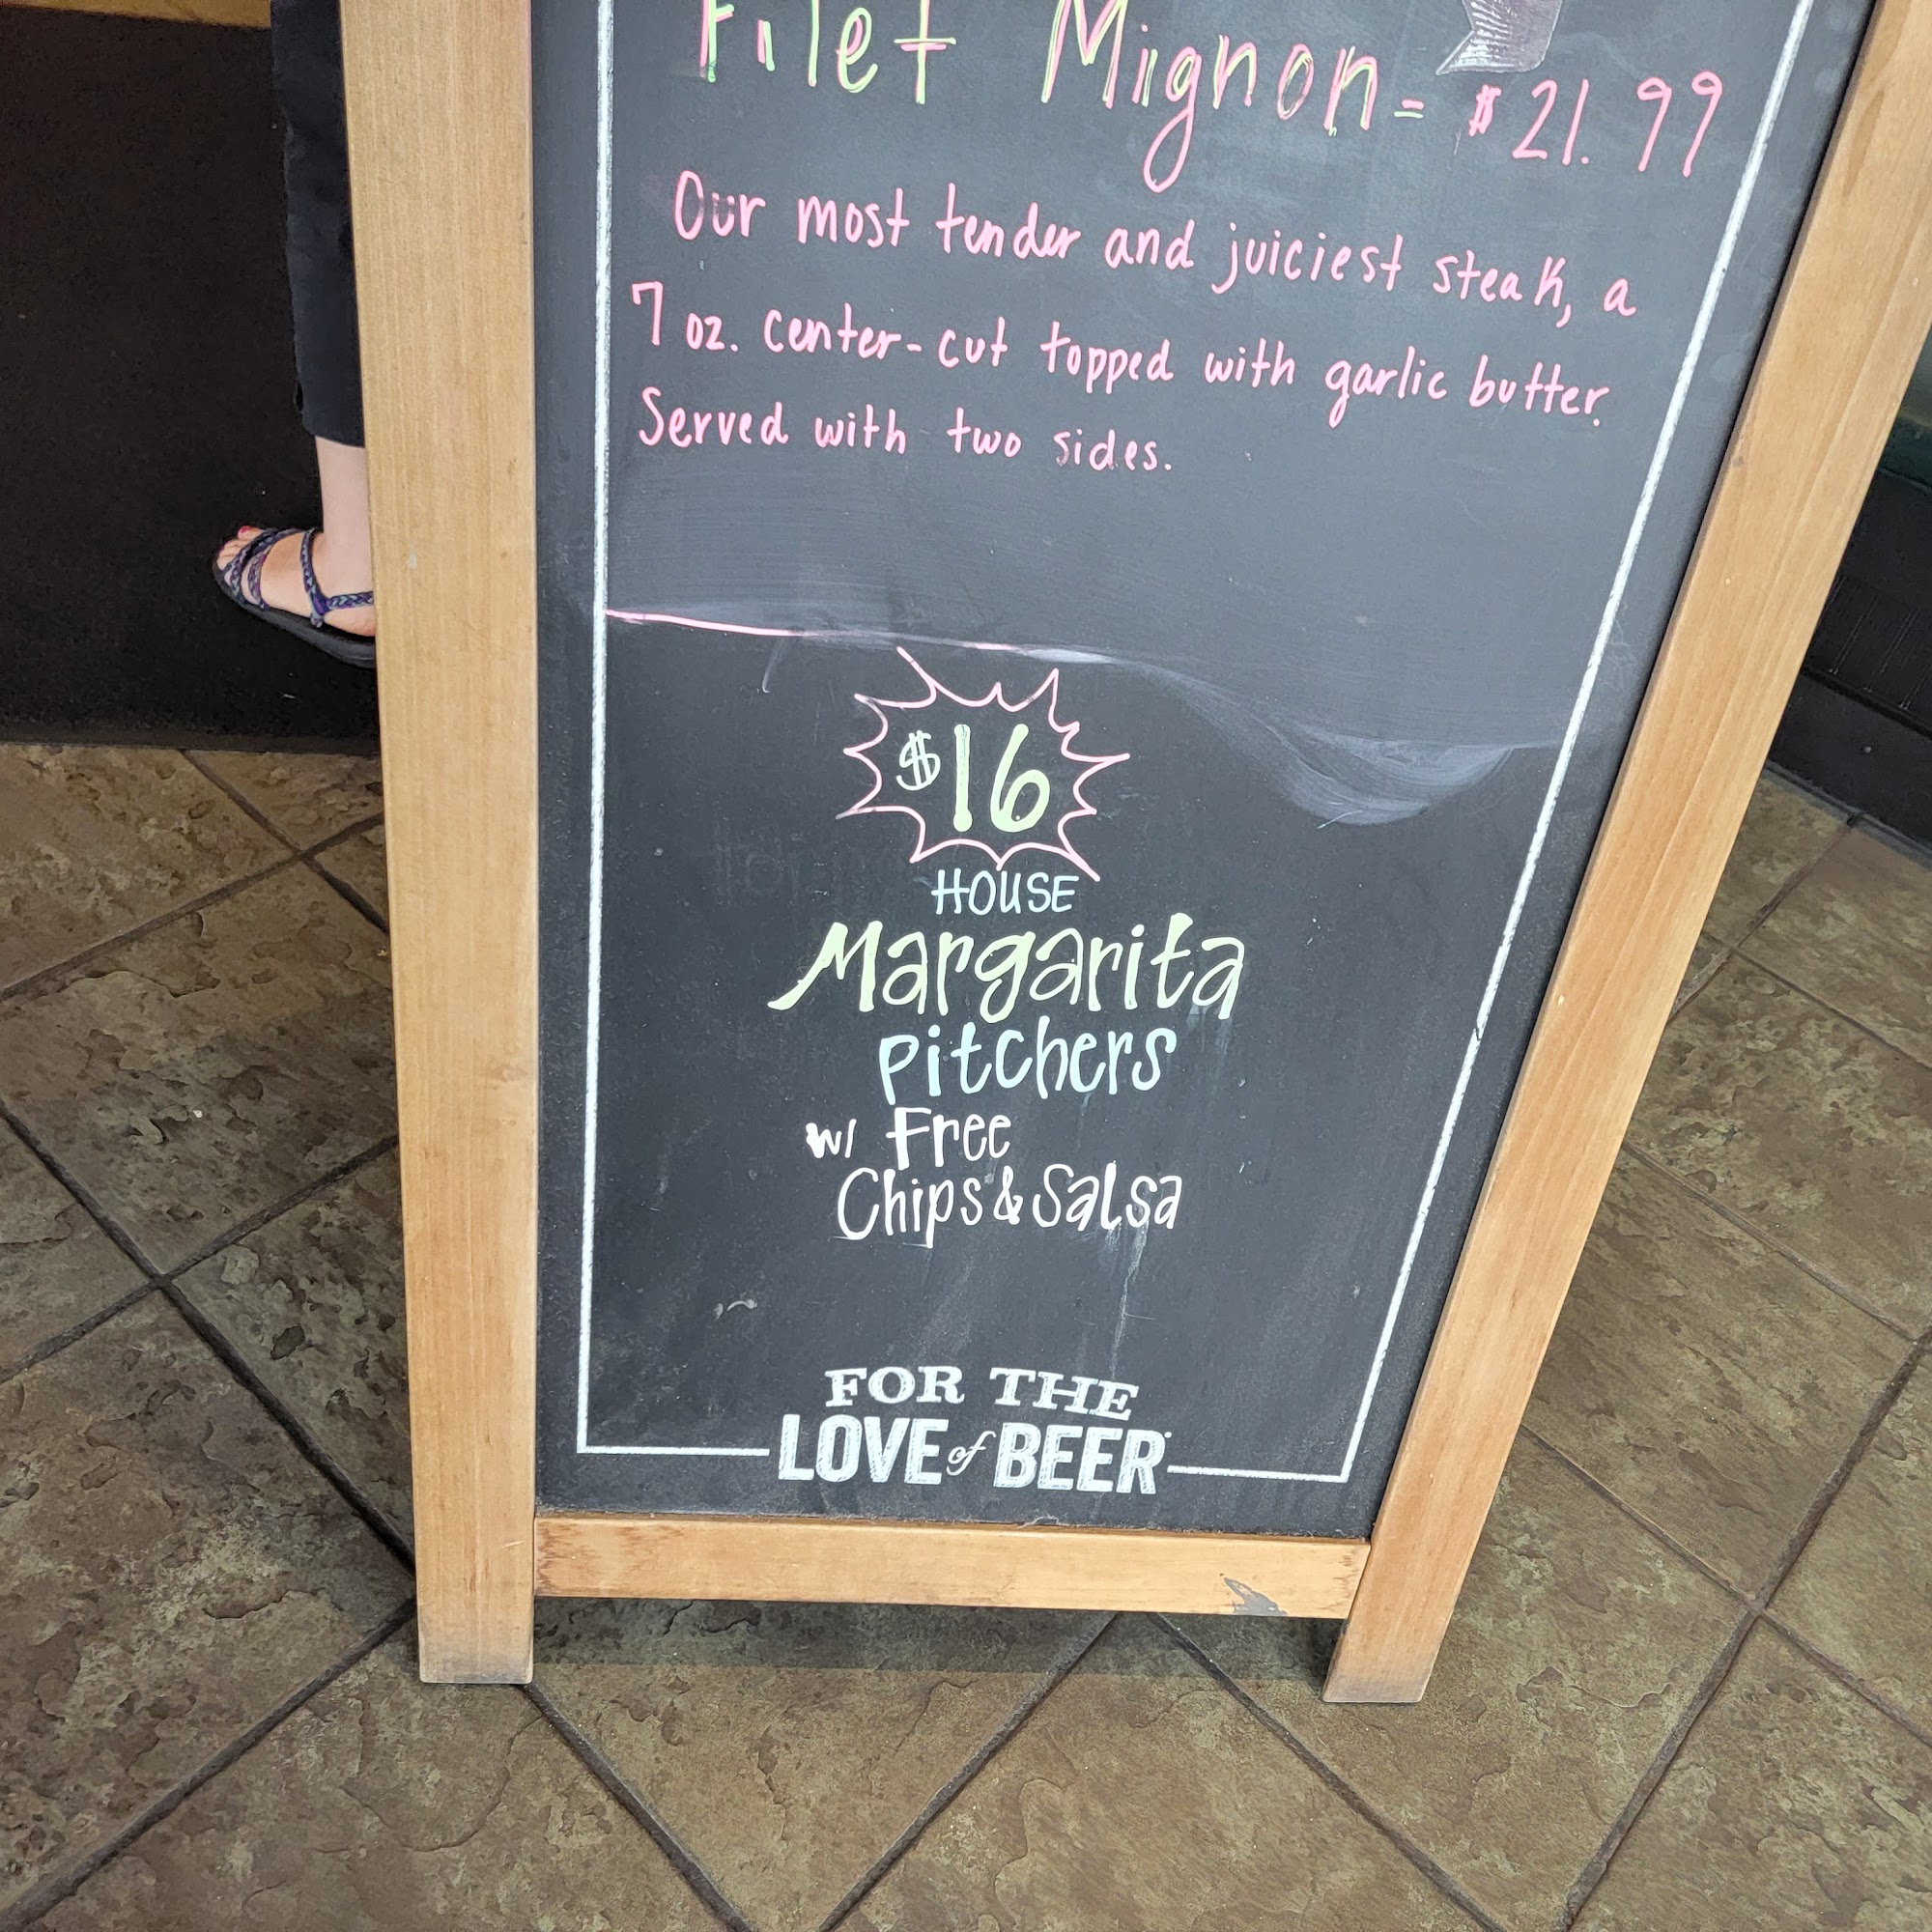 Filet Mignon = $21.99
Our most tender and juiciest steak, a
7 oz. center-cut topped with garlic butter.
Served with two sides.
$16
HOUSE
Margarita
pitchers
w/ Free
Chips & Salsa
FOR THE
LOVE of BEER